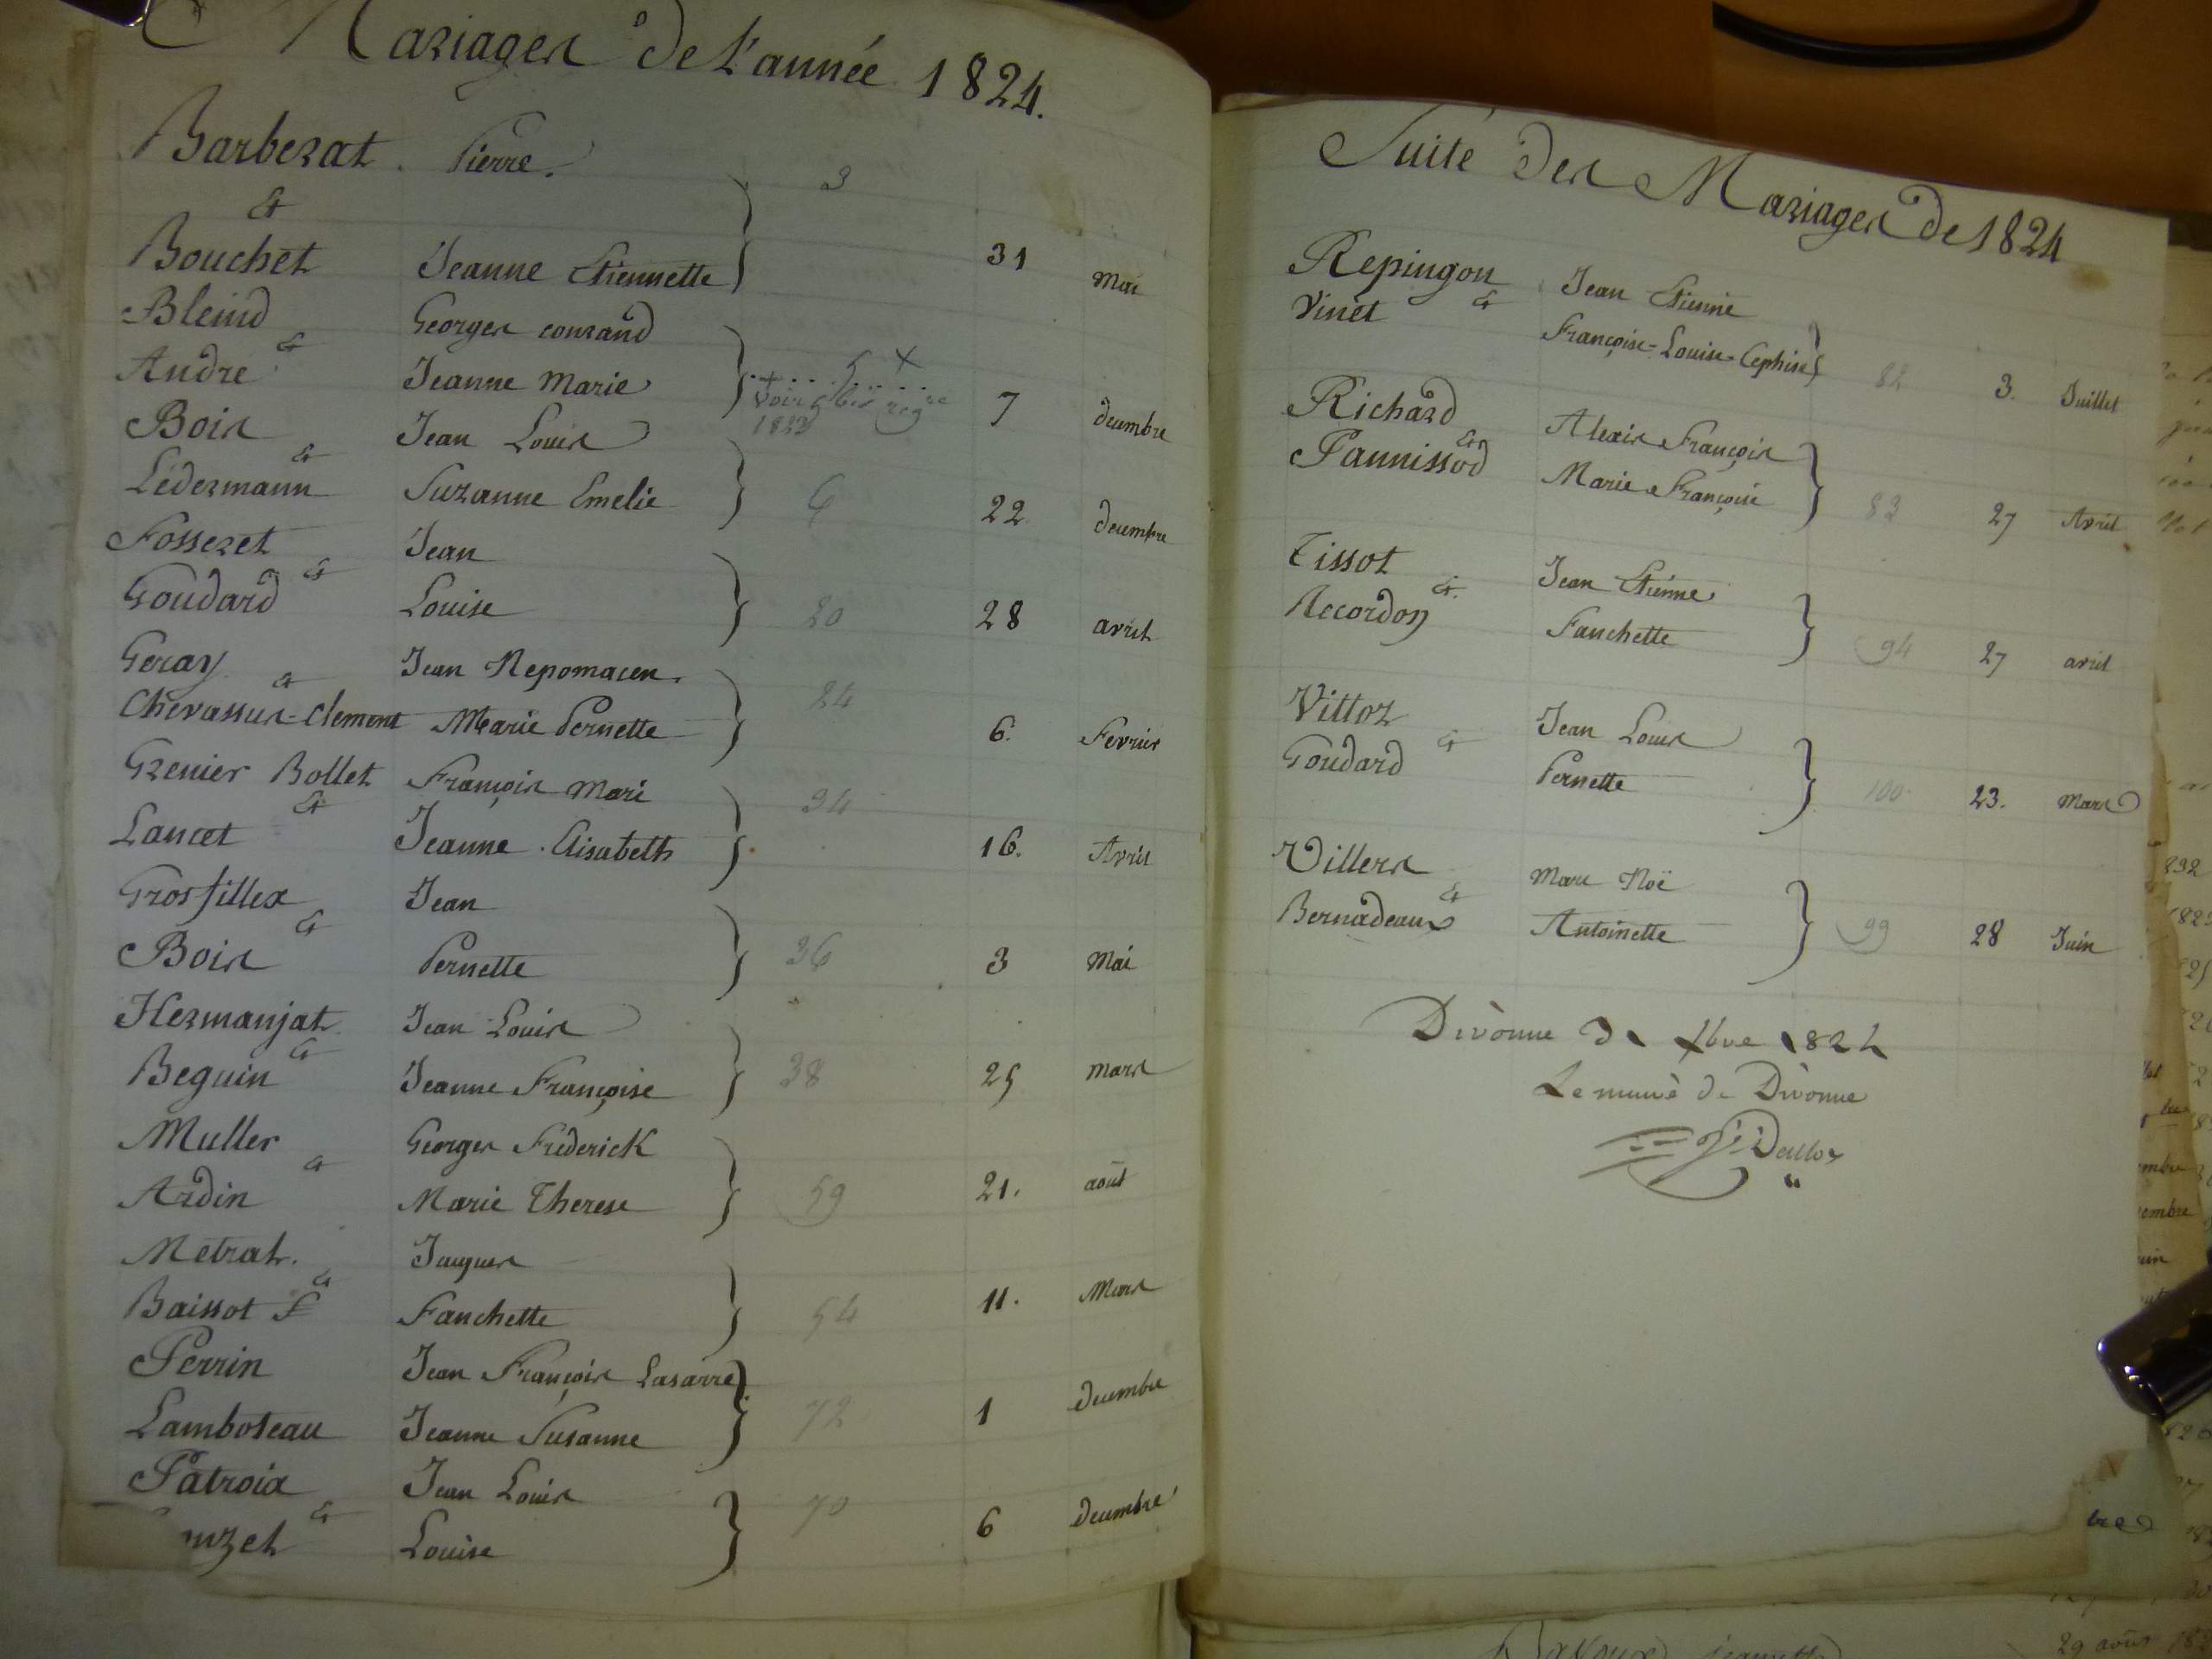 Mariages de l'année 1824.
Barbezat Pierre. 3
&
Bouchet Jeanne Etiennette 31 Mai
Bleind Georges conrand
&
André Jeanne Marie 5 × 7 decembre
voir 5 bis reg re
1823
Bois Jean Louis
&
Lédermann Suzanne Emelie 6 22 decembre
Fosseret Jean
&
Goudard Louise 20 28 avril
Geray Jean Nepomacen.
&
Chevassus-Clement Marie Pernette 24 6. Fevrier
Grenier Bollet François Mari
&
Lancet Jeanne Elisabeth 34 16. Avril
Grosfillex Jean
&
Bois Pernette 36 3 Mai
Hermanjat Jean Louis
&
Beguin Jeanne Françoise 38 25 mars
Muller Georges Fréderick
&
Ardin Marie Therese 59 21. août
Metrat. Jaques
&
Baissot F Fanchette 54 11. Mars
Perrin Jean François Lasarre
Lamboteau Jeanne Susanne 72 1 Decembre
Patroix Jean Louis
&
Louise 70 6 Decembre
Suite des Mariages de 1824
Repingon Jean Etienne
&
Vinet Françoise-Louise-Cephise 82 3. Juillet
Richard Alexis François
&
Pannissod Marie Françoise 83 27 Avril
Tissot Jean Etienne
&
Accordon Fanchette 94 27 avril
Vittoz Jean Louis
&
Goudard Pernette 100 23. Mars
Villers Marc Noë
&
Bernadeaux Antoinette 99 28 Juin
Divonne 1824
Le maire de Divonne
29 août